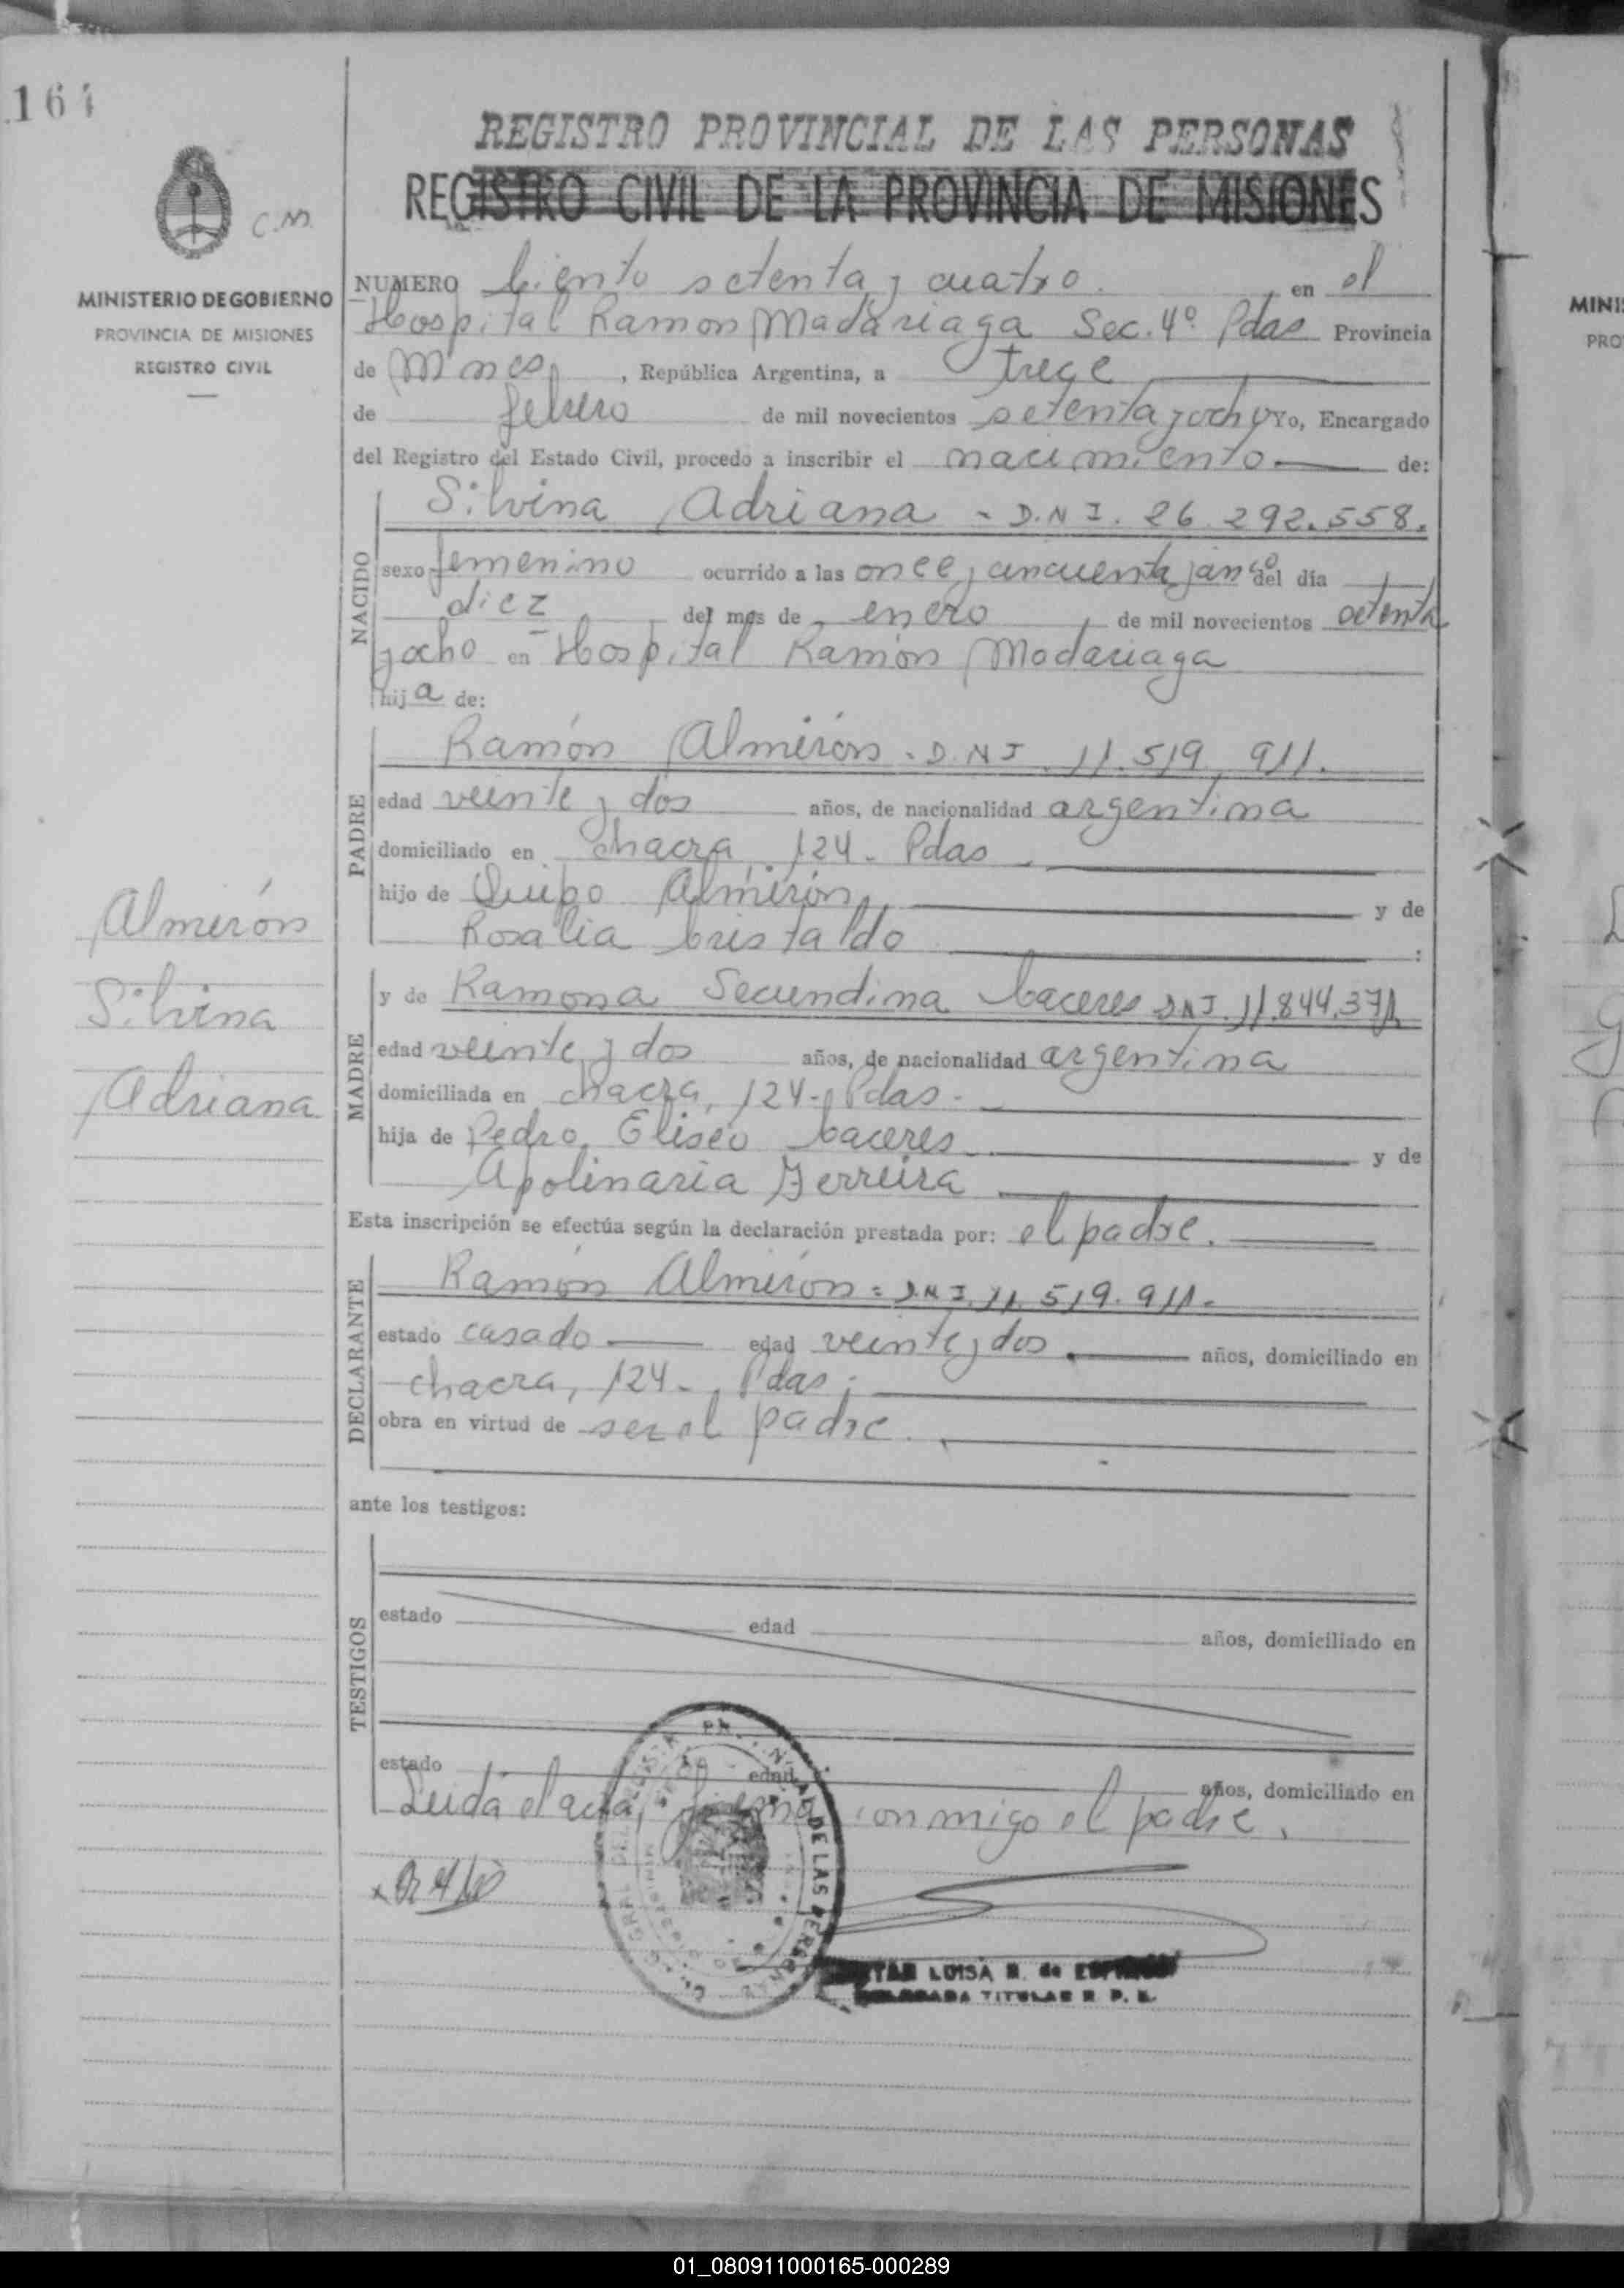 164
REGISTRO PROVINCIAL DE LAS PERSONAS
REGISTRO CIVIL DE LA PROVINCIA DE MISIONES
C.M.
MINISTERIO DE GOBIERNO
PROVINCIA DE MISIONES
REGISTRO CIVIL
NUMERO Ciento setenta y cuatro. en el
Hospital Ramon Madariaga Sec. 4º Pdas Provincia
de Mnes, República Argentina, a trece
de febrero de mil novecientos setenta y ocho Yo, Encargado
del Registro del Estado Civil, procedo a inscribir el nacimiento de:
NACIDO
Silvina Adriana - D.N.I. 26.292.558.
sexo femenino ocurrido a las once y cincuenta y cinco del día
diez del mes de enero de mil novecientos setenta
y ocho en Hospital Ramón Madariaga
hija de:
PADRE
Ramón Almirón - D.N.I. 11.519.911.
edad veinte y dos años, de nacionalidad argentina
domiciliado en chacra 124 - Pdas
hijo de Almirón y de
Rosalia Cristaldo :
MADRE
y de Ramona Secundina Caceres D.N.I. 11.844.371
edad veinte y dos años, de nacionalidad argentina
domiciliada en chacra, 124 - Pdas -
hija de Pedro Eliseo Caceres y de
Apolinaria Ferreira
Almirón
Silvina
Adriana
Esta inscripción se efectúa según la declaración prestada por: el padre.
DECLARANTE
Ramón Almirón = D.N.I. 11.519.911.
estado casado edad veinte y dos años, domiciliado en
chacra, 124 - Pdas.
obra en virtud de ser el padre.
ante los testigos:
TESTIGOS
estado edad años, domiciliado en
estado edad años, domiciliado en
Leida el acta, firma conmigo el padre.
LUISA R. de
TITULAR R. P. P.
01_080911000165-000289